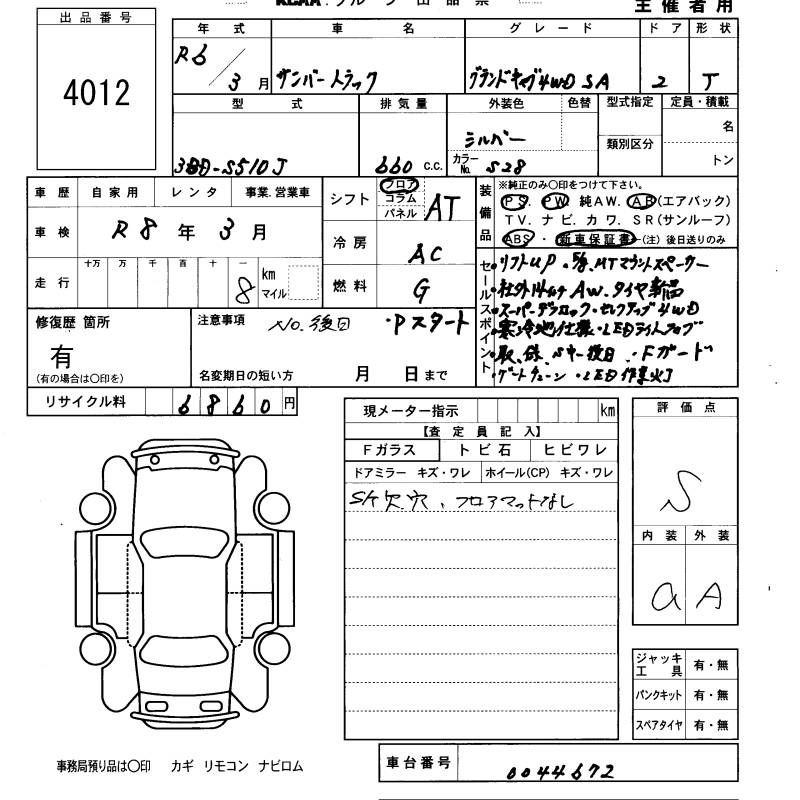 KCAA グループ出品票
主催者用
出品番号
4012
年式 車名 グレード ドア 形状
R6/3月 サンバートラック グランドキャブ4WD SA 2 T
型式 排気量 外装色 色替 型式指定 定員・積載
類別区分 名
トン
3BD-S510J 660 c.c. シルバー
カラーNo. S28
車歴 自家用 レンタ 事業.営業車
車検 R8年3月
走行 十万 万 千 百 十 一 8 km マイル
シフト フロア コラム パネル AT
冷房 AC
燃料 G
装備品 ※純正のみ〇印をつけて下さい。
PS. PW 純AW. AB(エアバック)
TV. ナビ. カワ. SR(サンルーフ)
ABS・新車保証書(注)後日送りのみ
セールスポイント
・リフトup ・5/8.MTマウントスペーサー
・社外14インチAW.タイヤ新品
・スーパーデフロック・セレクティブ4WD
・寒冷地仕様・LEDライトフォグ
・取.保.Sキー後日.・Fガード
・ゲートチェーン・LED作業灯
修復歴 箇所
有
(有の場合は〇印を)
注意事項 No.後日 ・Pスタート
名変期日の短い方 月 日まで
リサイクル料 6860円
現メーター指示 km
【査定員記入】
Fガラス トビ石 ヒビワレ
ドアミラー キズ・ワレ ホイール(CP) キズ・ワレ
S欠穴、フロアマットなし
評価点
S
内装 外装
a A
ジャッキ工具 有・無
パンクキット 有・無
スペアタイヤ 有・無
事務局預り品は〇印 カギ リモコン ナビロム
車台番号 0044672